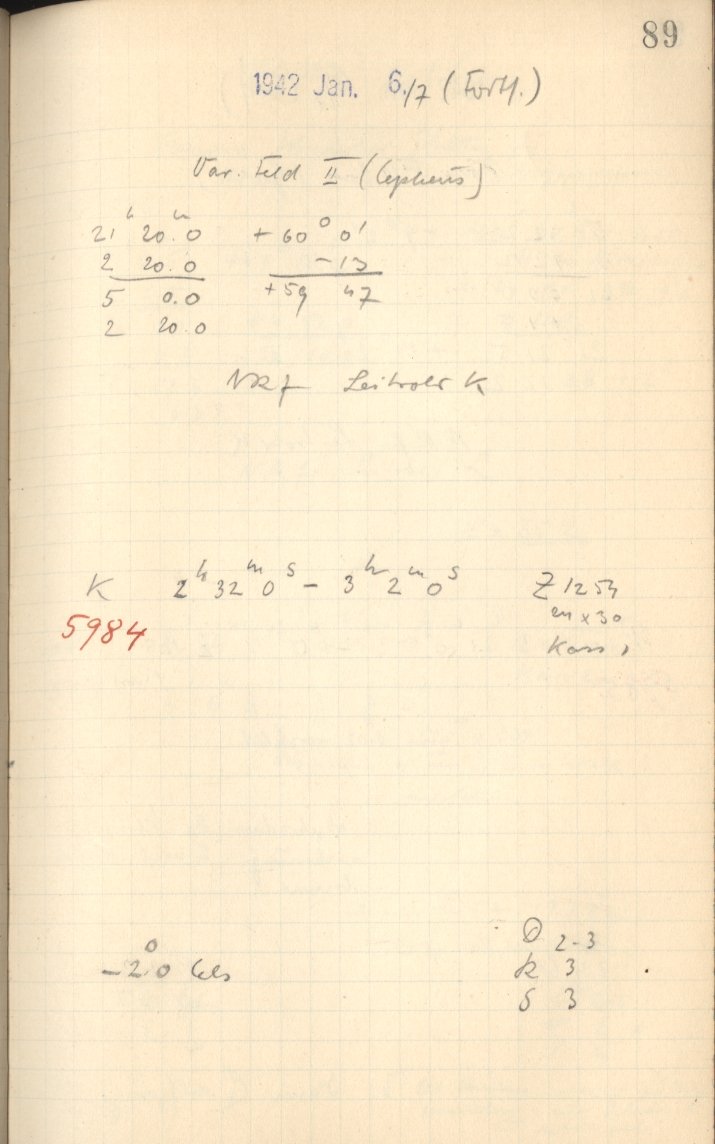 89
1942 Jan. 6./7 (Forts.)
Var. Feld II (Cepheus)
21h 20m.0 + 60° 0'
2 20.0 - 13
5 0.0 + 59 47
2 20.0
K 2h 32m 0s - 3h 2m 0s Z 1254
5984 m x 30
Kass 1
-2°.0 Cels
2-3
R 3
S 3